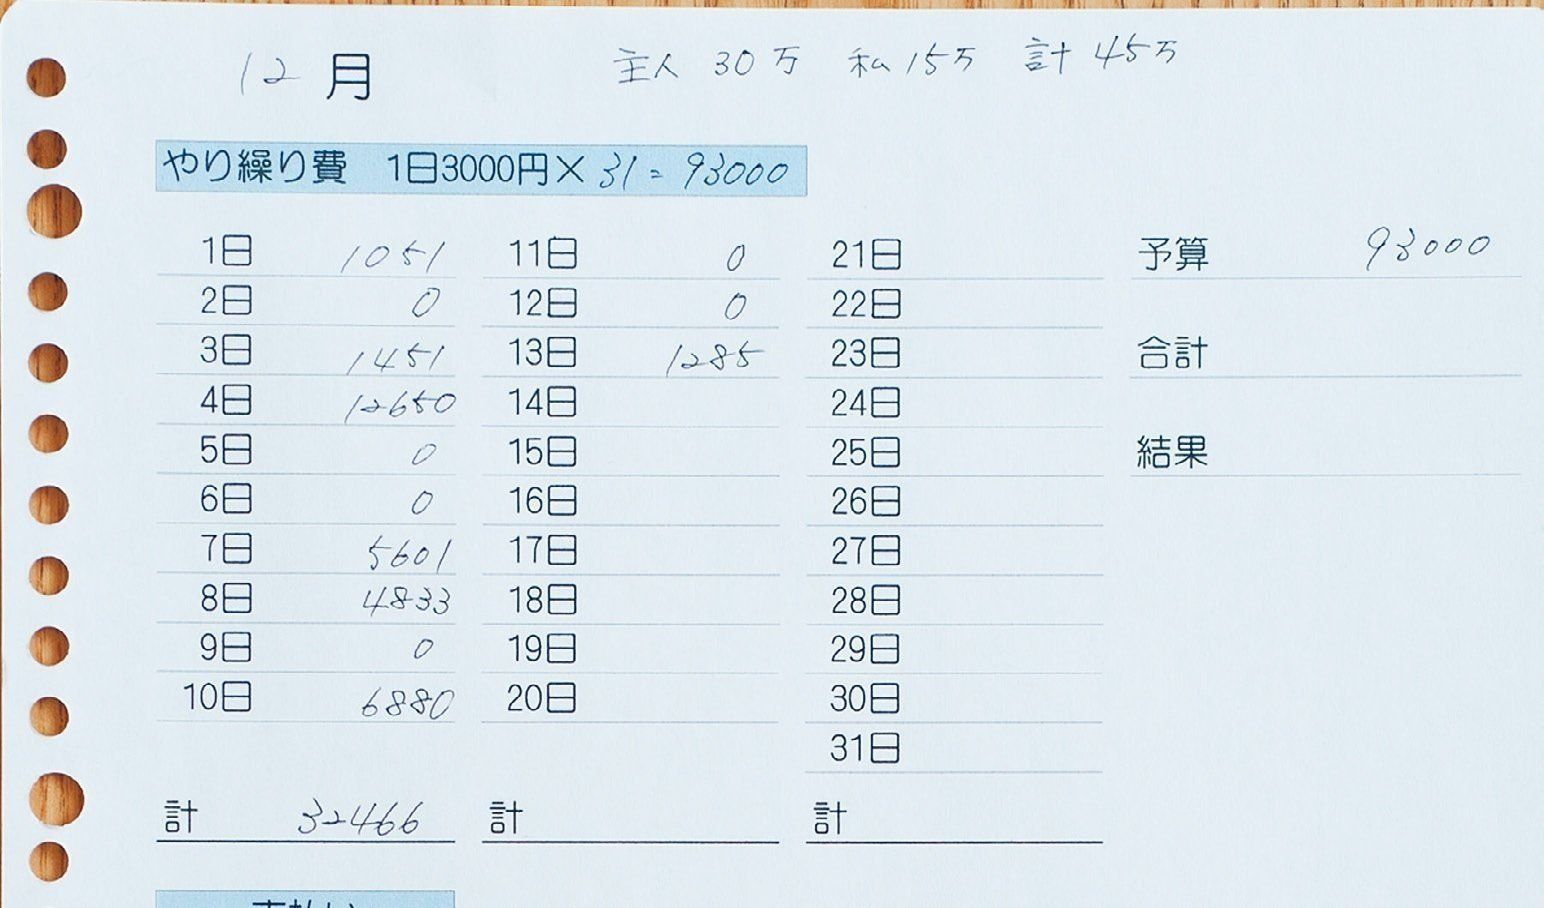 12月 主人 30万 私15万 計 45万
やり繰り費 1日3000円× 31 = 93000
1日 1051 11日 0 21日 予算 93000
2日 0 12日 0 22日
3日 1451 13日 1285 23日 合計
4日 12650 14日 24日
5日 0 15日 25日 結果
6日 0 16日 26日
7日 5601 17日 27日
8日 4833 18日 28日
9日 0 19日 29日
10日 6880 20日 30日
31日
計 32466 計 計